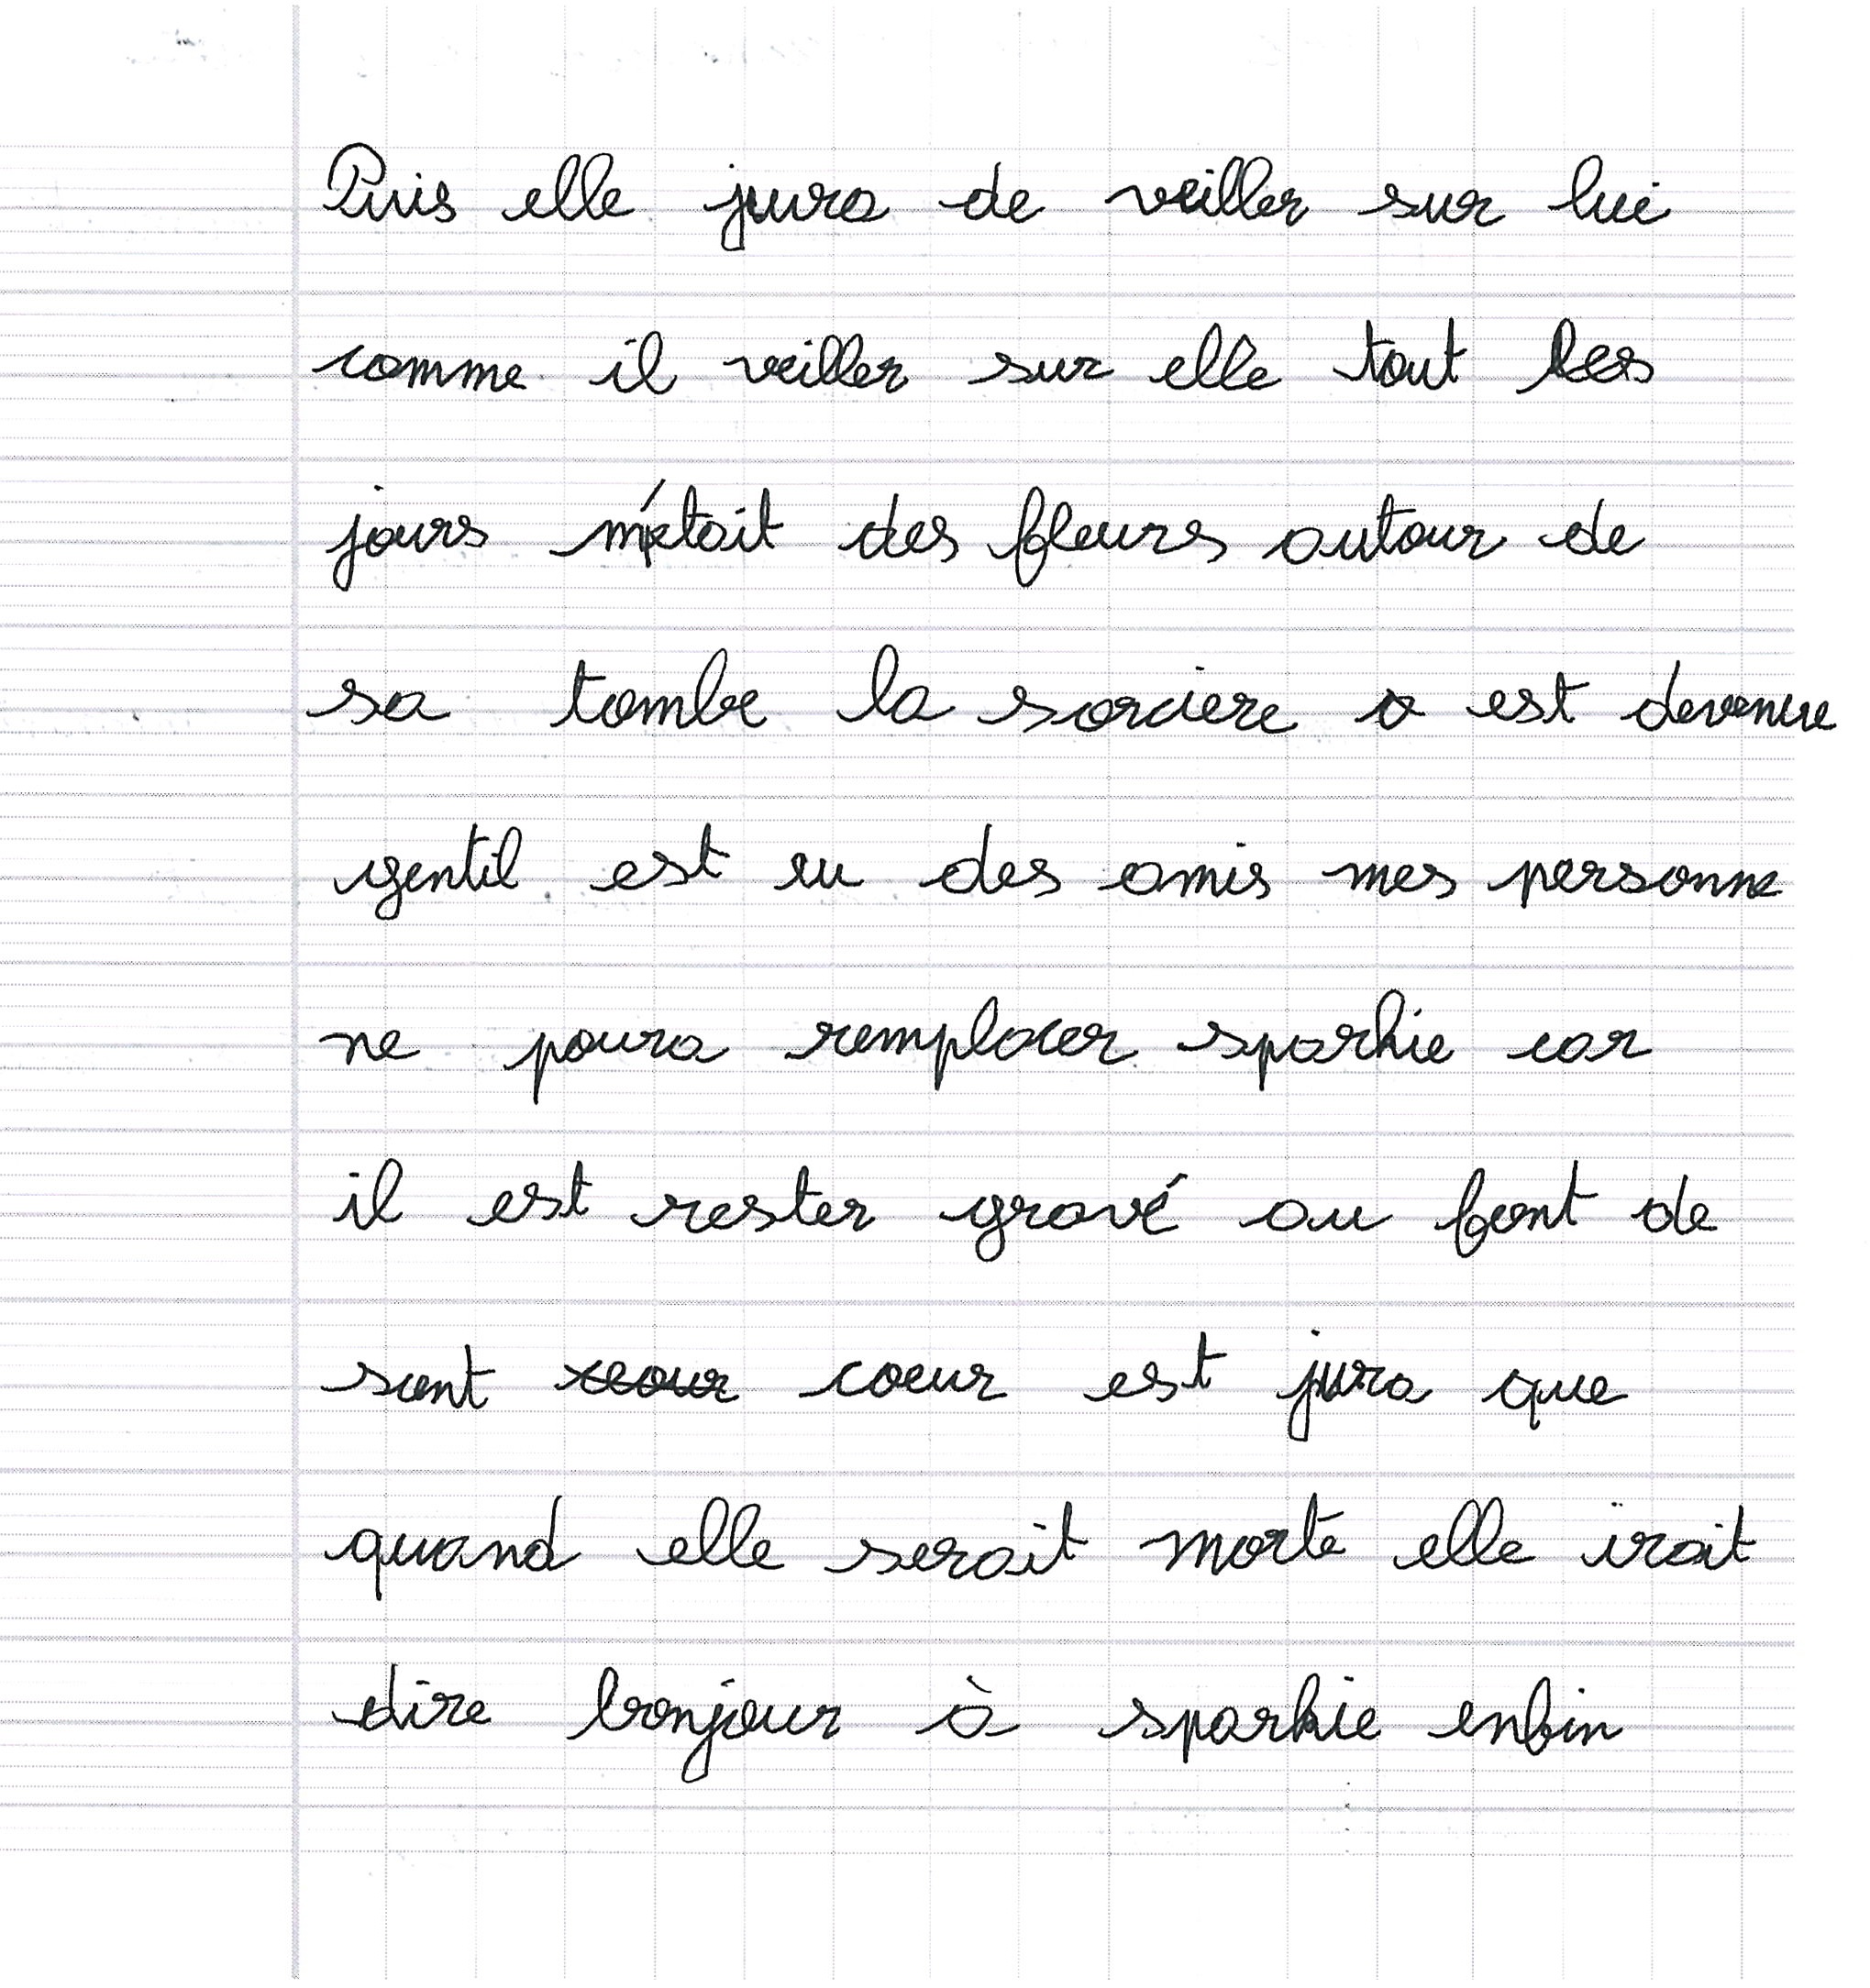 Puis elle jura de veiller sur lui
comme il veiller sur elle tout les
jours métait des fleurs autour de
sa tombe la sorciere a est devenue
gentil est eu des amis mes personne
ne poura remplacer sparkie car
il est rester gravé au font de
sont coeur est jura que
quand elle serait morte elle irait
dire bonjour à sparkie enfin